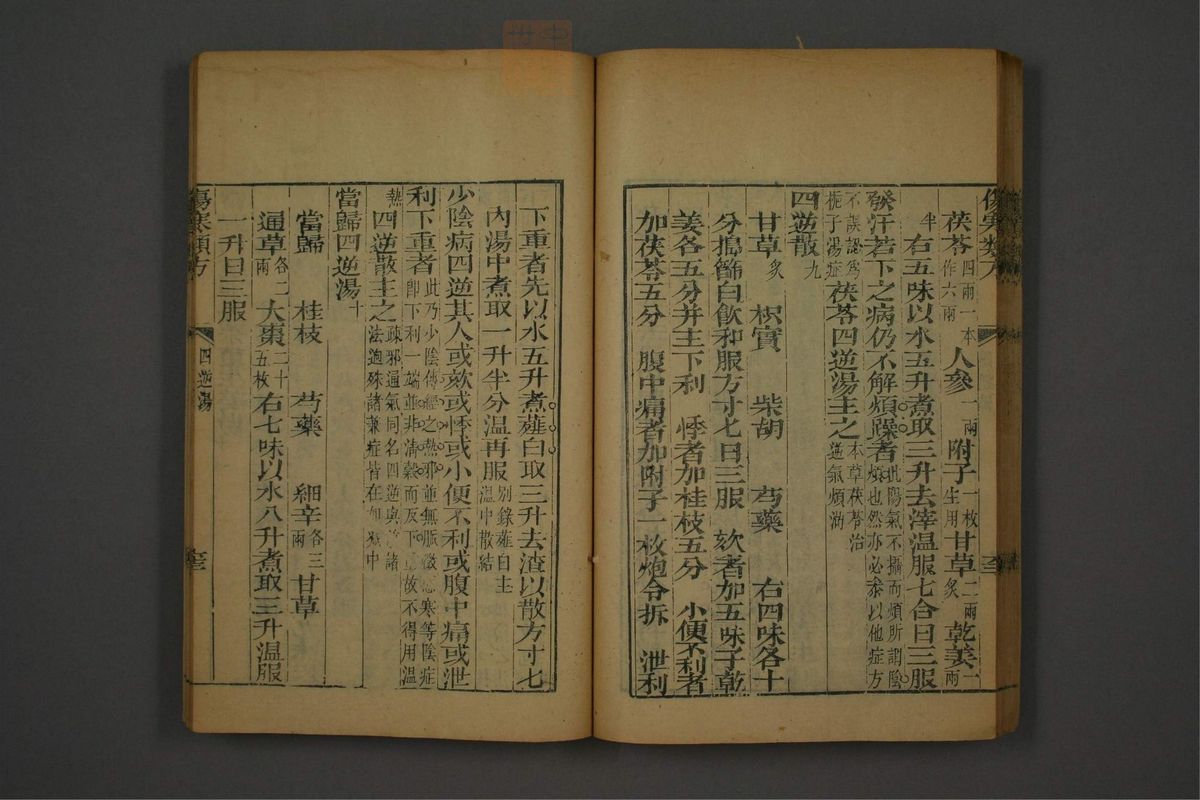 傷寒類方
茯苓四兩一本作六兩 人參一兩 附子一枚生用 甘草二兩炙 乾姜一兩
半 右五味以水五升煮取三升去滓温服七合日三服
發汗若下之病仍不解煩躁者此陽氣不攝而煩所謂陰煩也然亦必叅以他症方
不誤認爲梔子湯症 茯苓四逆湯主之本草茯苓治逆氣煩滿
四逆散九
甘草炙 枳實 柴胡 芍藥 右四味各十
分搗篩白飲和服方寸七日三服 欬者加五味子乾
姜各五分并主下利 悸者加桂枝五分 小便不利者
加茯苓五分 腹中痛者加附子一枚炮令拆 泄利
下重者先以水五升煮薤白取三升去渣以散方寸七
內湯中煮取一升半分温再服別錄薤白主温中散結
少陰病四逆其人或欬或悸或小便不利或腹中痛或泄
利下重者此乃少陰傳經之熱邪並無脈微惡寒等陰症即下利一端並非清穀而反下重故不得用温
熱 四逆散主之疎邪通氣同名四逆與諸法逈殊諸兼症皆在如獄中
當歸四逆湯十
當歸 桂枝 芍藥 細辛各三兩 甘草
通草各二兩 大棗二十五枚 右七味以水八升煮取三升温服
一升日三服
傷寒類方
四逆湯